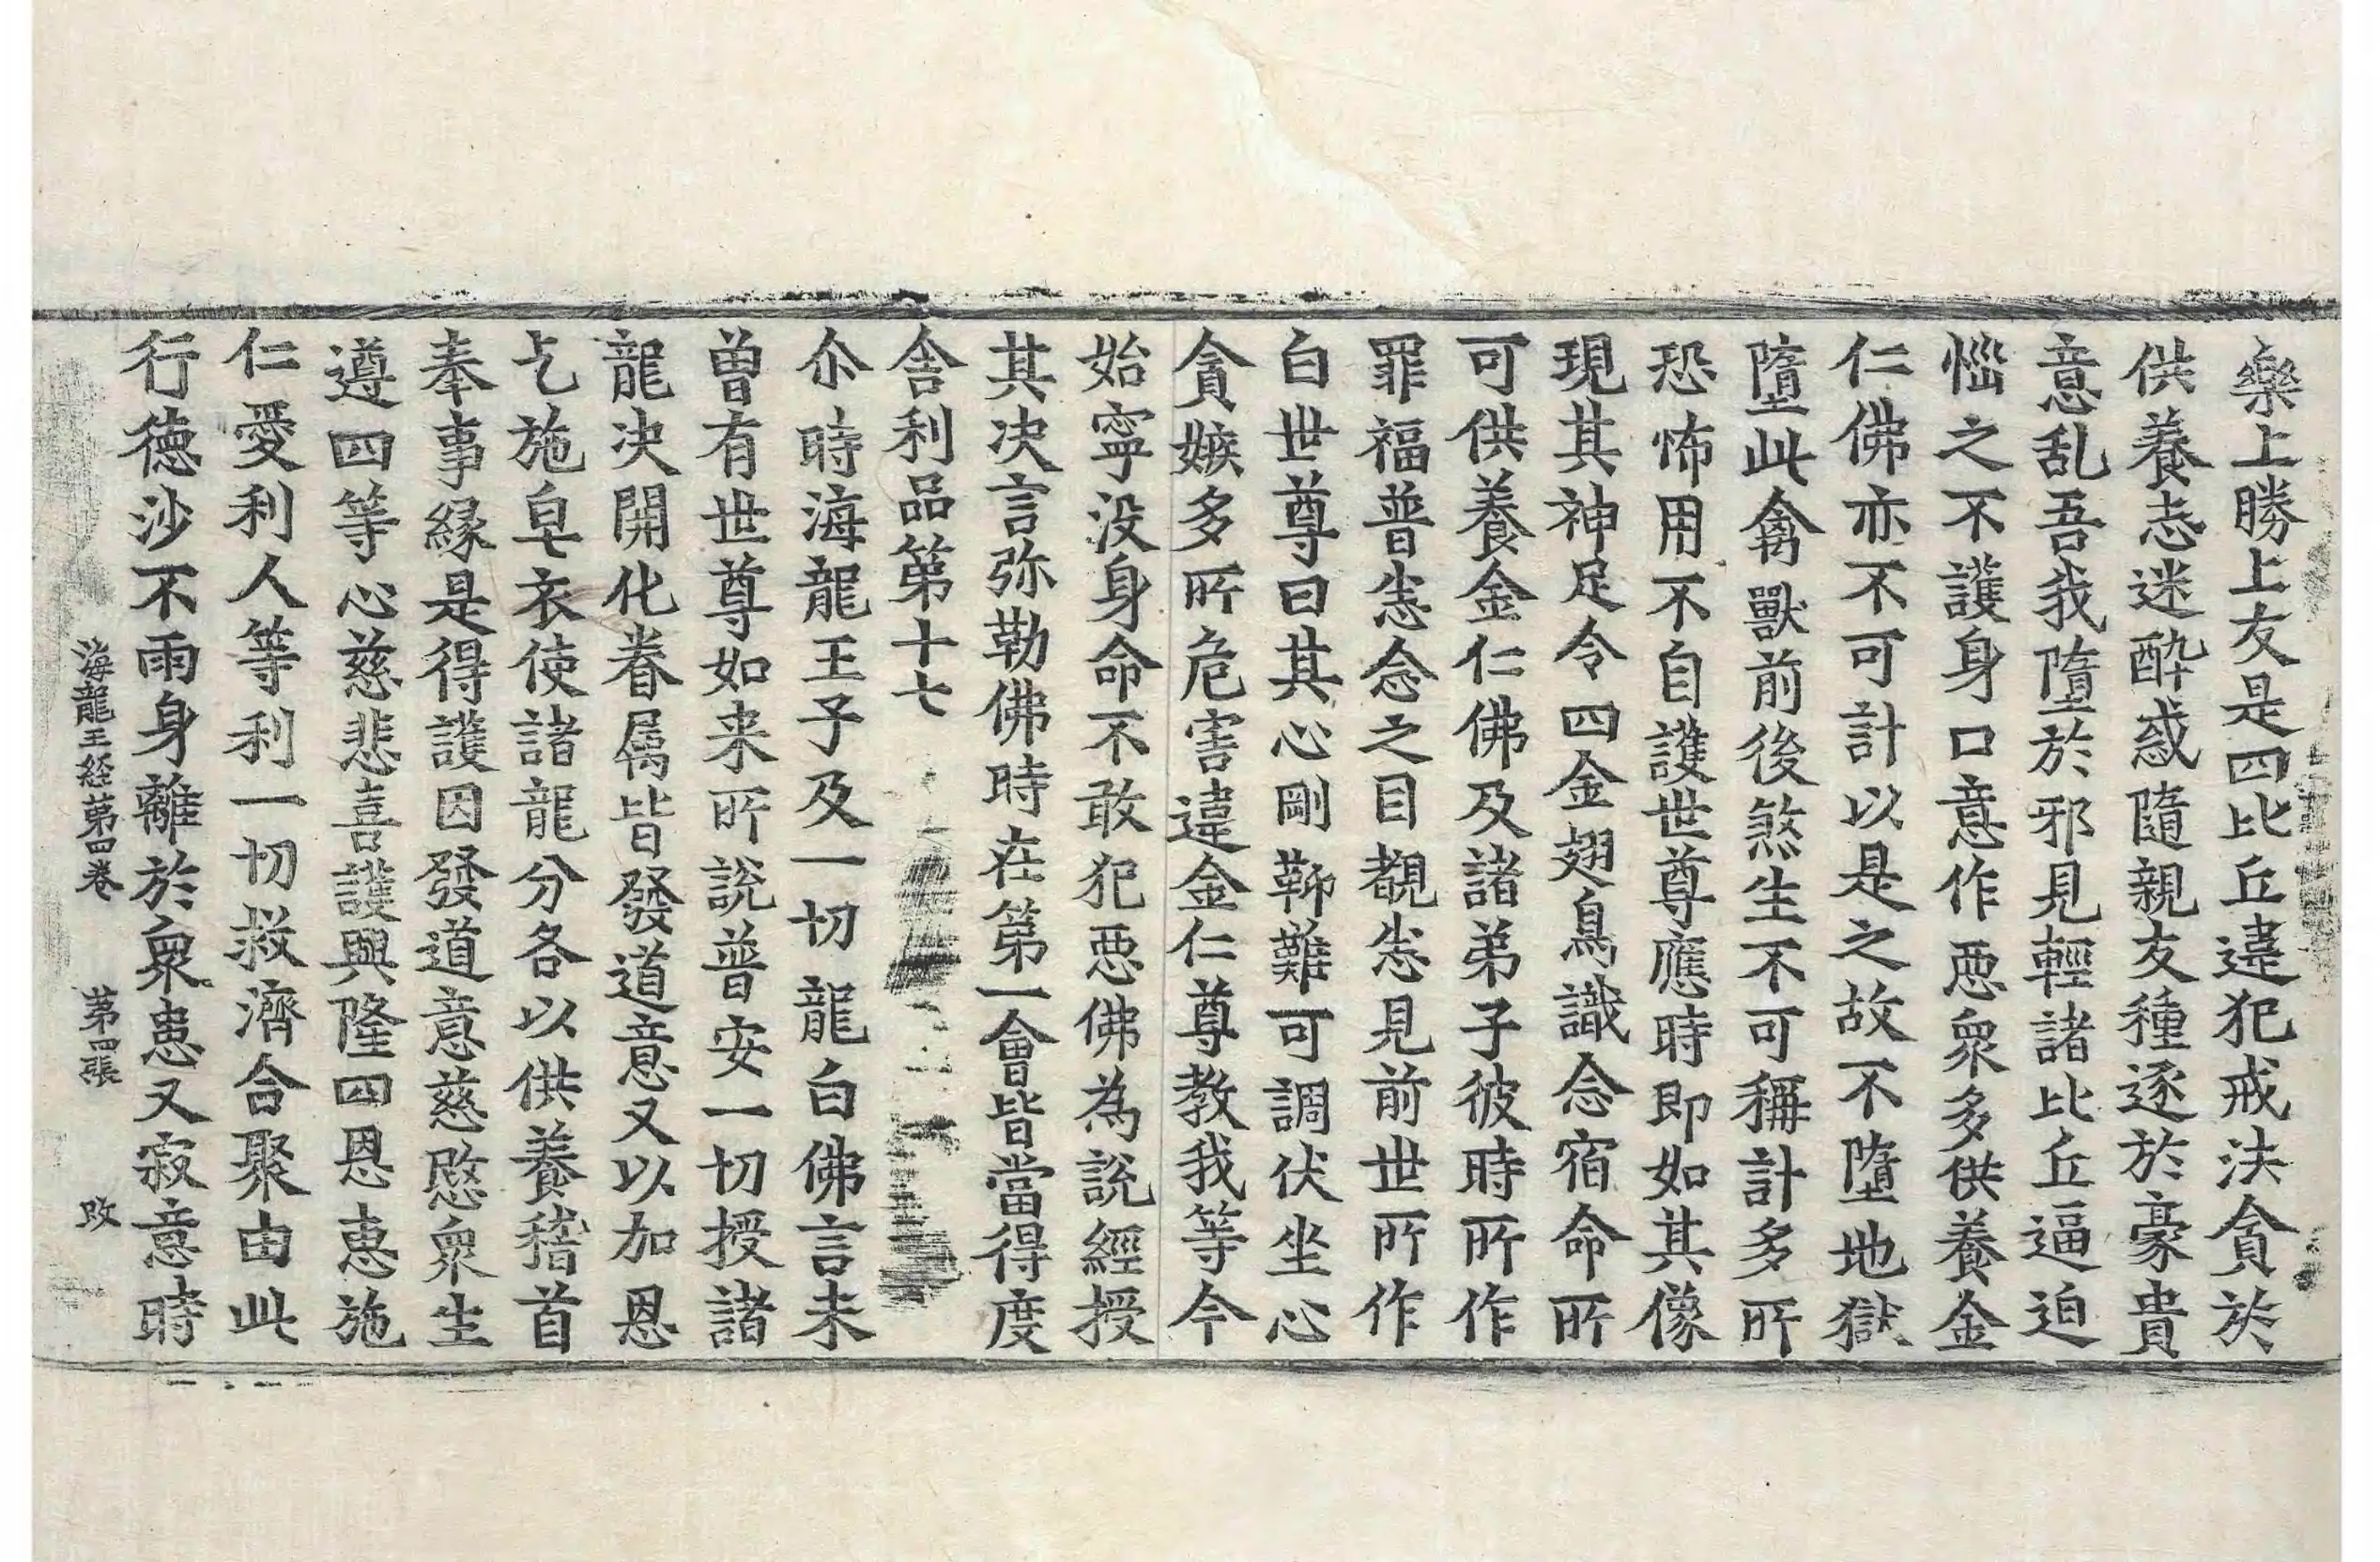 樂上勝上友是四比丘違犯戒法貪於
供養志迷醉惑隨親友種逐於豪貴
意乱吾我墮於邪見輕諸比丘逼迫
惱之不護身口意作悪衆多供養金
仁佛亦不可計以是之故不墮地獄
墮此禽獸前後煞生不可稱計多所
恐怖用不自護世尊應時即如其像
現其神足令四金翅鳥識念宿命所
可供養金仁佛及諸弟子彼時所作
罪福普悉念之目覩悉見前世所作
白世尊曰其心剛鞕難可調伏坐心
貪嫉多所危害違金仁尊教我等今
始寧没身命不敢犯悪佛為説經授
其决言弥勒佛時在第一會皆當得度
舍利品第十七
尒時海龍王子及一切龍白佛言未
曽有世尊如来所説普安一切授諸
龍决開化眷属皆發道意又以加恩
乞施皁衣使諸龍分各以供養稽首
奉事縁是得護因發道意慈愍衆生
遵四等心慈悲喜護興隆四恩恵施
仁愛利人等利一切救濟合聚由此
行徳沙不雨身離於衆患又寂意時
海龍王経第四卷 第四張 改